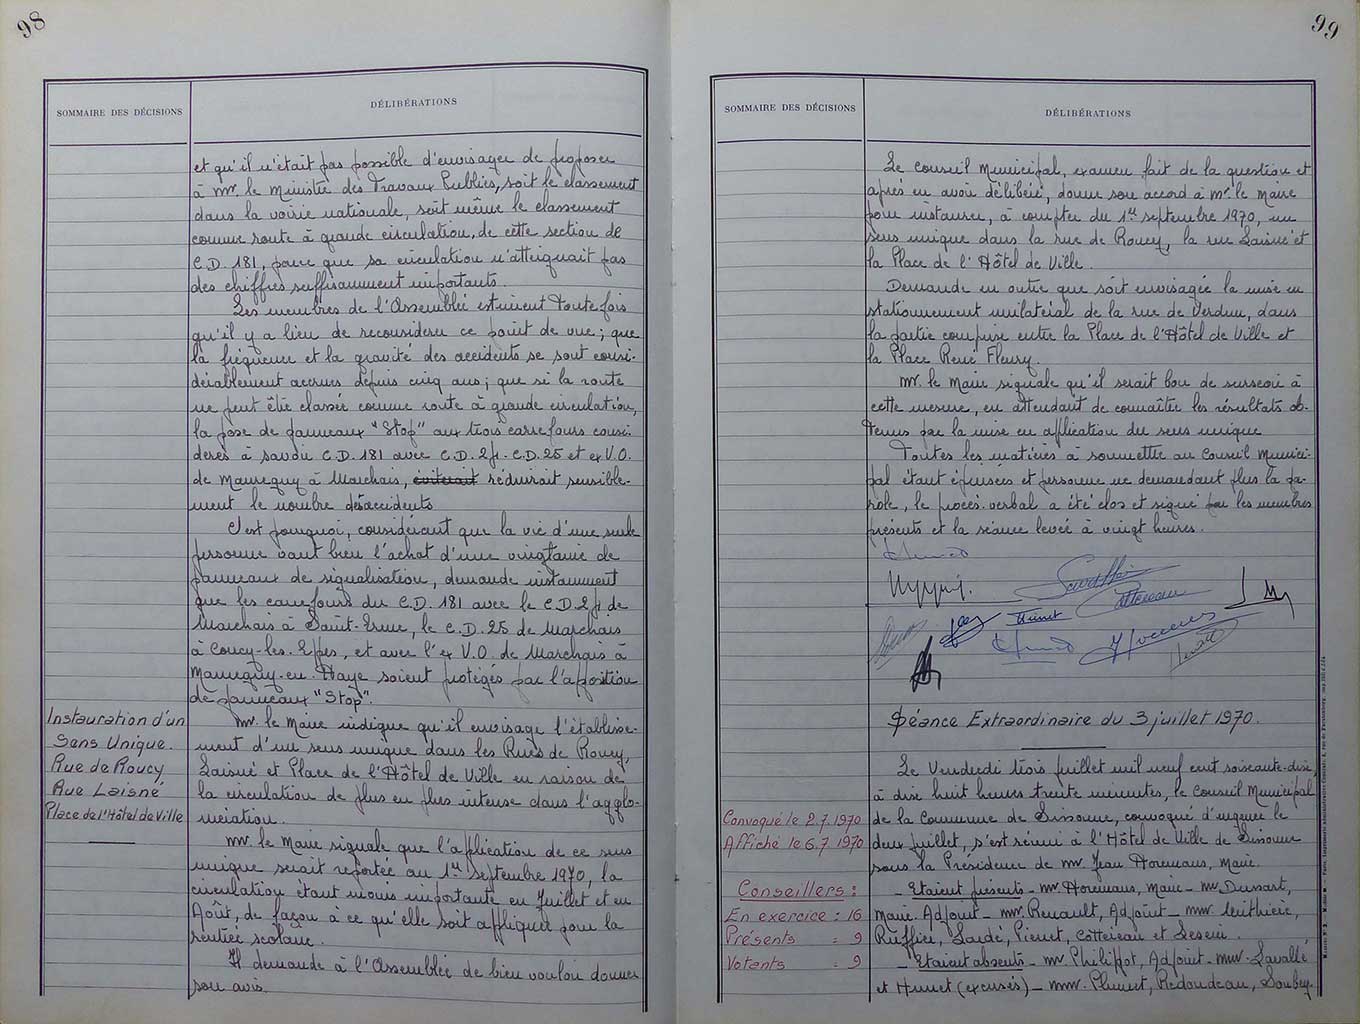 98
SOMMAIRE DES DÉCISIONS
DÉLIBÉRATIONS
et qu'il n'était pas possible d'envisager de proposer
à Mr. le Ministre des Travaux Publics, soit le classement
dans la voirie nationale, soit même le classement
comme route à grande circulation, de cette section de
C.D. 181, parce que sa circulation n'atteignait pas
des chiffres suffisamment importants.
Les membres de l'Assemblée estiment toutefois
qu'il y a lieu de reconsidérer ce point de vue ; que
la fréquence et la gravité des accidents se sont consi-
dérablement accrues depuis cinq ans ; que si la route
ne peut être classée comme route à grande circulation,
la pose de panneaux "Stop" aux trois carrefours consi-
dérés à savoir C.D. 181 avec C.D. 24. C.D. 25 et ex V.O.
de Mauregny à Marchais, éviterait réduirait sensible-
ment le nombre des accidents
C'est pourquoi, considérant que la vie d'une seule
personne vaut bien l'achat d'une vingtaine de
panneaux de signalisation, demande instamment
que les carrefours du C.D. 181 avec le C.D. 24 de
Marchais à Saint-Erme, le C.D. 25 de Marchais
à Coucy-les-Eppes, et avec l'ex V.O. de Marchais à
Mauregny-en-Haye soient protégés par l'apposition
de panneaux "Stop".
Instauration d'un
Sens Unique.
Rue de Roucy
Rue Laisné
Place de l'Hôtel de Ville
Mr. le Maire indique qu'il envisage l'établisse-
ment d'un sens unique dans les Rues de Roucy,
Laisné et Place de l'Hôtel de Ville en raison de
la circulation de plus en plus intense dans l'agglo-
mération.
Mr. le Maire signale que l'application de ce sens
unique serait reportée au 1er Septembre 1970, la
circulation étant moins importante en Juillet et en
Août, de façon à ce qu'elle soit appliquée pour la
rentrée scolaire.
Il demande à l'Assemblée de bien vouloir donner
son avis.
99
SOMMAIRE DES DÉCISIONS
DÉLIBÉRATIONS
Le Conseil Municipal, examen fait de la question et
après en avoir délibéré, donne son accord à Mr. le Maire
pour instaurer, à compter du 1er septembre 1970, un
sens unique dans la rue de Roucy, la rue Laisné et
la Place de l'Hôtel de Ville.
Demande en outre que soit envisagée la mise en
stationnement unilatéral de la rue de Verdun, dans
la partie comprise entre la Place de l'Hôtel de Ville et
la Place René Fleury.
Mr. le Maire signale qu'il serait bon de surseoir à
cette mesure, en attendant de connaître les résultats ob-
tenus par la mise en application du sens unique
Toutes les matières à soumettre au Conseil Munici-
pal étant épuisées et personne ne demandant plus la pa-
role, le procès-verbal a été clos et signé par les membres
présents et la séance levée à vingt heures.
Séance Extraordinaire du 3 juillet 1970.
Le Vendredi trois juillet mil neuf cent soixante-dix,
à dix huit heures trente minutes, le Conseil Municipal
Convoqué le 2.7.1970
de la Commune de Sissonne, convoqué d'urgence le
Affiché le 6.7.1970
deux juillet, s'est réuni à l'Hôtel de Ville de Sissonne
sous la Présidence de Mr Jean Horemans, Maire.
Conseillers :
En exercice : 16
Présents : 9
Votants : 9
- Etaient présents - Mr. Horemans, Maire - Mr Dussart,
Maire-Adjoint - Mr. Renault, Adjoint - MM.
Ruffier, Laudé, Pienet, Cottereau et
- Etaient absents - Mr. Philippot, Adjoint - MM. Lavallé
et Hunet (excusés) - MM. Redondeau,